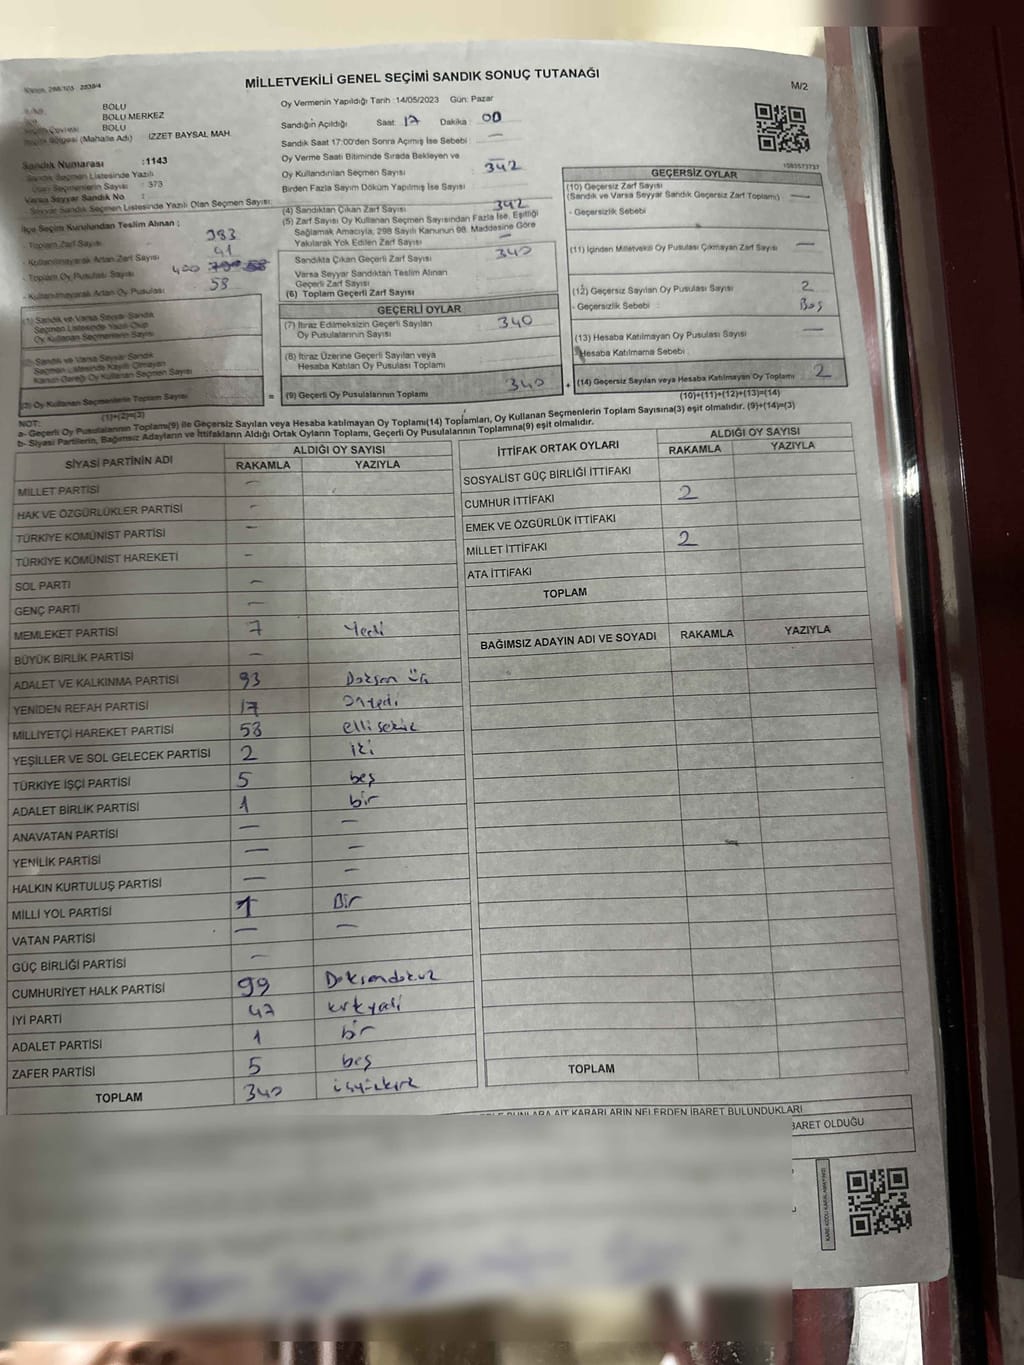 MİLLETVEKİLİ GENEL SEÇİMİ SANDIK SONUÇ TUTANAĞI
M/2
BOLU
BOLU MERKEZ
BOLU
(Mahalle Adı) IZZET BAYSAL MAH.
Sandık Numarası :1143
Sandık Seçmen Listesinde Yazılı
Olan Seçmenlerin Sayısı : 373
Varsa Seyyar Sandık No :
Seyyar Sandık Seçmen Listesinde Yazılı Olan Seçmen Sayısı:
İlçe Seçim Kurulundan Teslim Alınan ;
- Toplam Zarf Sayısı 383
- Kullanılmayarak Artan Zarf Sayısı 41
- Toplam Oy Pusulası Sayısı 400
- Kullanılmayarak Artan Oy Pusulası 58
Oy Vermenin Yapıldığı Tarih :14/05/2023 Gün: Pazar
Sandığın Açıldığı Saat: 17 Dakika : 00
Sandık Saat 17:00'den Sonra Açılmış İse Sebebi : —
Oy Verme Saati Bitiminde Sırada Bekleyen ve
Oy Kullandırılan Seçmen Sayısı 342
Birden Fazla Sayım Döküm Yapılmış İse Sayısı
(4) Sandıktan Çıkan Zarf Sayısı 342
(5) Zarf Sayısı Oy Kullanan Seçmen Sayısından Fazla İse, Eşitliği
Sağlamak Amacıyla, 298 Sayılı Kanunun 98. Maddesine Göre
Yakılarak Yok Edilen Zarf Sayısı —
Sandıkta Çıkan Geçerli Zarf Sayısı 340
Varsa Seyyar Sandıktan Teslim Alınan
Geçerli Zarf Sayısı
(6) Toplam Geçerli Zarf Sayısı
GEÇERLİ OYLAR
(7) İtiraz Edilmeksizin Geçerli Sayılan
Oy Pusulalarının Sayısı 340
(8) İtiraz Üzerine Geçerli Sayılan veya
Hesaba Katılan Oy Pusulası Toplamı
(9) Geçerli Oy Pusulalarının Toplamı 340
1583573737
GEÇERSİZ OYLAR
(10) Geçersiz Zarf Sayısı
(Sandık ve Varsa Seyyar Sandık Geçersiz Zarf Toplamı) —
- Geçersizlik Sebebi
(11) İçinden Milletvekili Oy Pusulası Çıkmayan Zarf Sayısı —
(12) Geçersiz Sayılan Oy Pusulası Sayısı 2
- Geçersizlik Sebebi : Boş
(13) Hesaba Katılmayan Oy Pusulası Sayısı —
Hesaba Katılmama Sebebi
(14) Geçersiz Sayılan veya Hesaba Katılmayan Oy Toplamı 2
(10)+(11)+(12)+(13)=(14)
(1) Sandık ve Varsa Seyyar Sandık
Seçmen Listesinde Yazılı Olup
Oy Kullanan Seçmenlerin Sayısı
(2) Sandık ve Varsa Seyyar Sandık
Seçmen Listesinde Kayıtlı Olmayan
Kanun Gereği Oy Kullanan Seçmen Sayısı
(3) Oy Kullanan Seçmenlerin Toplam Sayısı =
(1)+(2)=(3)
NOT:
a- Geçerli Oy Pusulalarının Toplamı(9) ile Geçersiz Sayılan veya Hesaba katılmayan Oy Toplamı(14) Toplamları, Oy Kullanan Seçmenlerin Toplam Sayısına(3) eşit olmalıdır. (9)+(14)=(3)
b- Siyasi Partilerin, Bağımsız Adayların ve İttifakların Aldığı Ortak Oyların Toplamı, Geçerli Oy Pusulalarının Toplamına(9) eşit olmalıdır.
SİYASİ PARTİNİN ADI ALDIĞI OY SAYISI
RAKAMLA YAZIYLA
MİLLET PARTİSİ —
HAK VE ÖZGÜRLÜKLER PARTİSİ —
TÜRKİYE KOMÜNİST PARTİSİ —
TÜRKİYE KOMÜNİST HAREKETİ —
SOL PARTİ —
GENÇ PARTİ —
MEMLEKET PARTİSİ 7 Yedi
BÜYÜK BİRLİK PARTİSİ —
ADALET VE KALKINMA PARTİSİ 93 Doksan üç
YENİDEN REFAH PARTİSİ 17 Onyedi
MİLLİYETÇİ HAREKET PARTİSİ 58 elli sekiz
YEŞİLLER VE SOL GELECEK PARTİSİ 2 iki
TÜRKİYE İŞÇİ PARTİSİ 5 beş
ADALET BİRLİK PARTİSİ 1 bir
ANAVATAN PARTİSİ — —
YENİLİK PARTİSİ — —
HALKIN KURTULUŞ PARTİSİ — —
MİLLİ YOL PARTİSİ 1 Bir
VATAN PARTİSİ — —
GÜÇ BİRLİĞİ PARTİSİ —
CUMHURİYET HALK PARTİSİ 99 Doksandokuz
İYİ PARTİ 47 kırkyedi
ADALET PARTİSİ 1 bir
ZAFER PARTİSİ 5 beş
TOPLAM 340 üçyüzkırk
İTTİFAK ORTAK OYLARI ALDIĞI OY SAYISI
RAKAMLA YAZIYLA
SOSYALİST GÜÇ BİRLİĞİ İTTİFAKI
CUMHUR İTTİFAKI 2
EMEK VE ÖZGÜRLÜK İTTİFAKI
MİLLET İTTİFAKI 2
ATA İTTİFAKI
TOPLAM
BAĞIMSIZ ADAYIN ADI VE SOYADI RAKAMLA YAZIYLA
TOPLAM
BUNLARA AİT KARARLARIN NELERDEN İBARET BULUNDUKLARI
BARET OLDUĞU